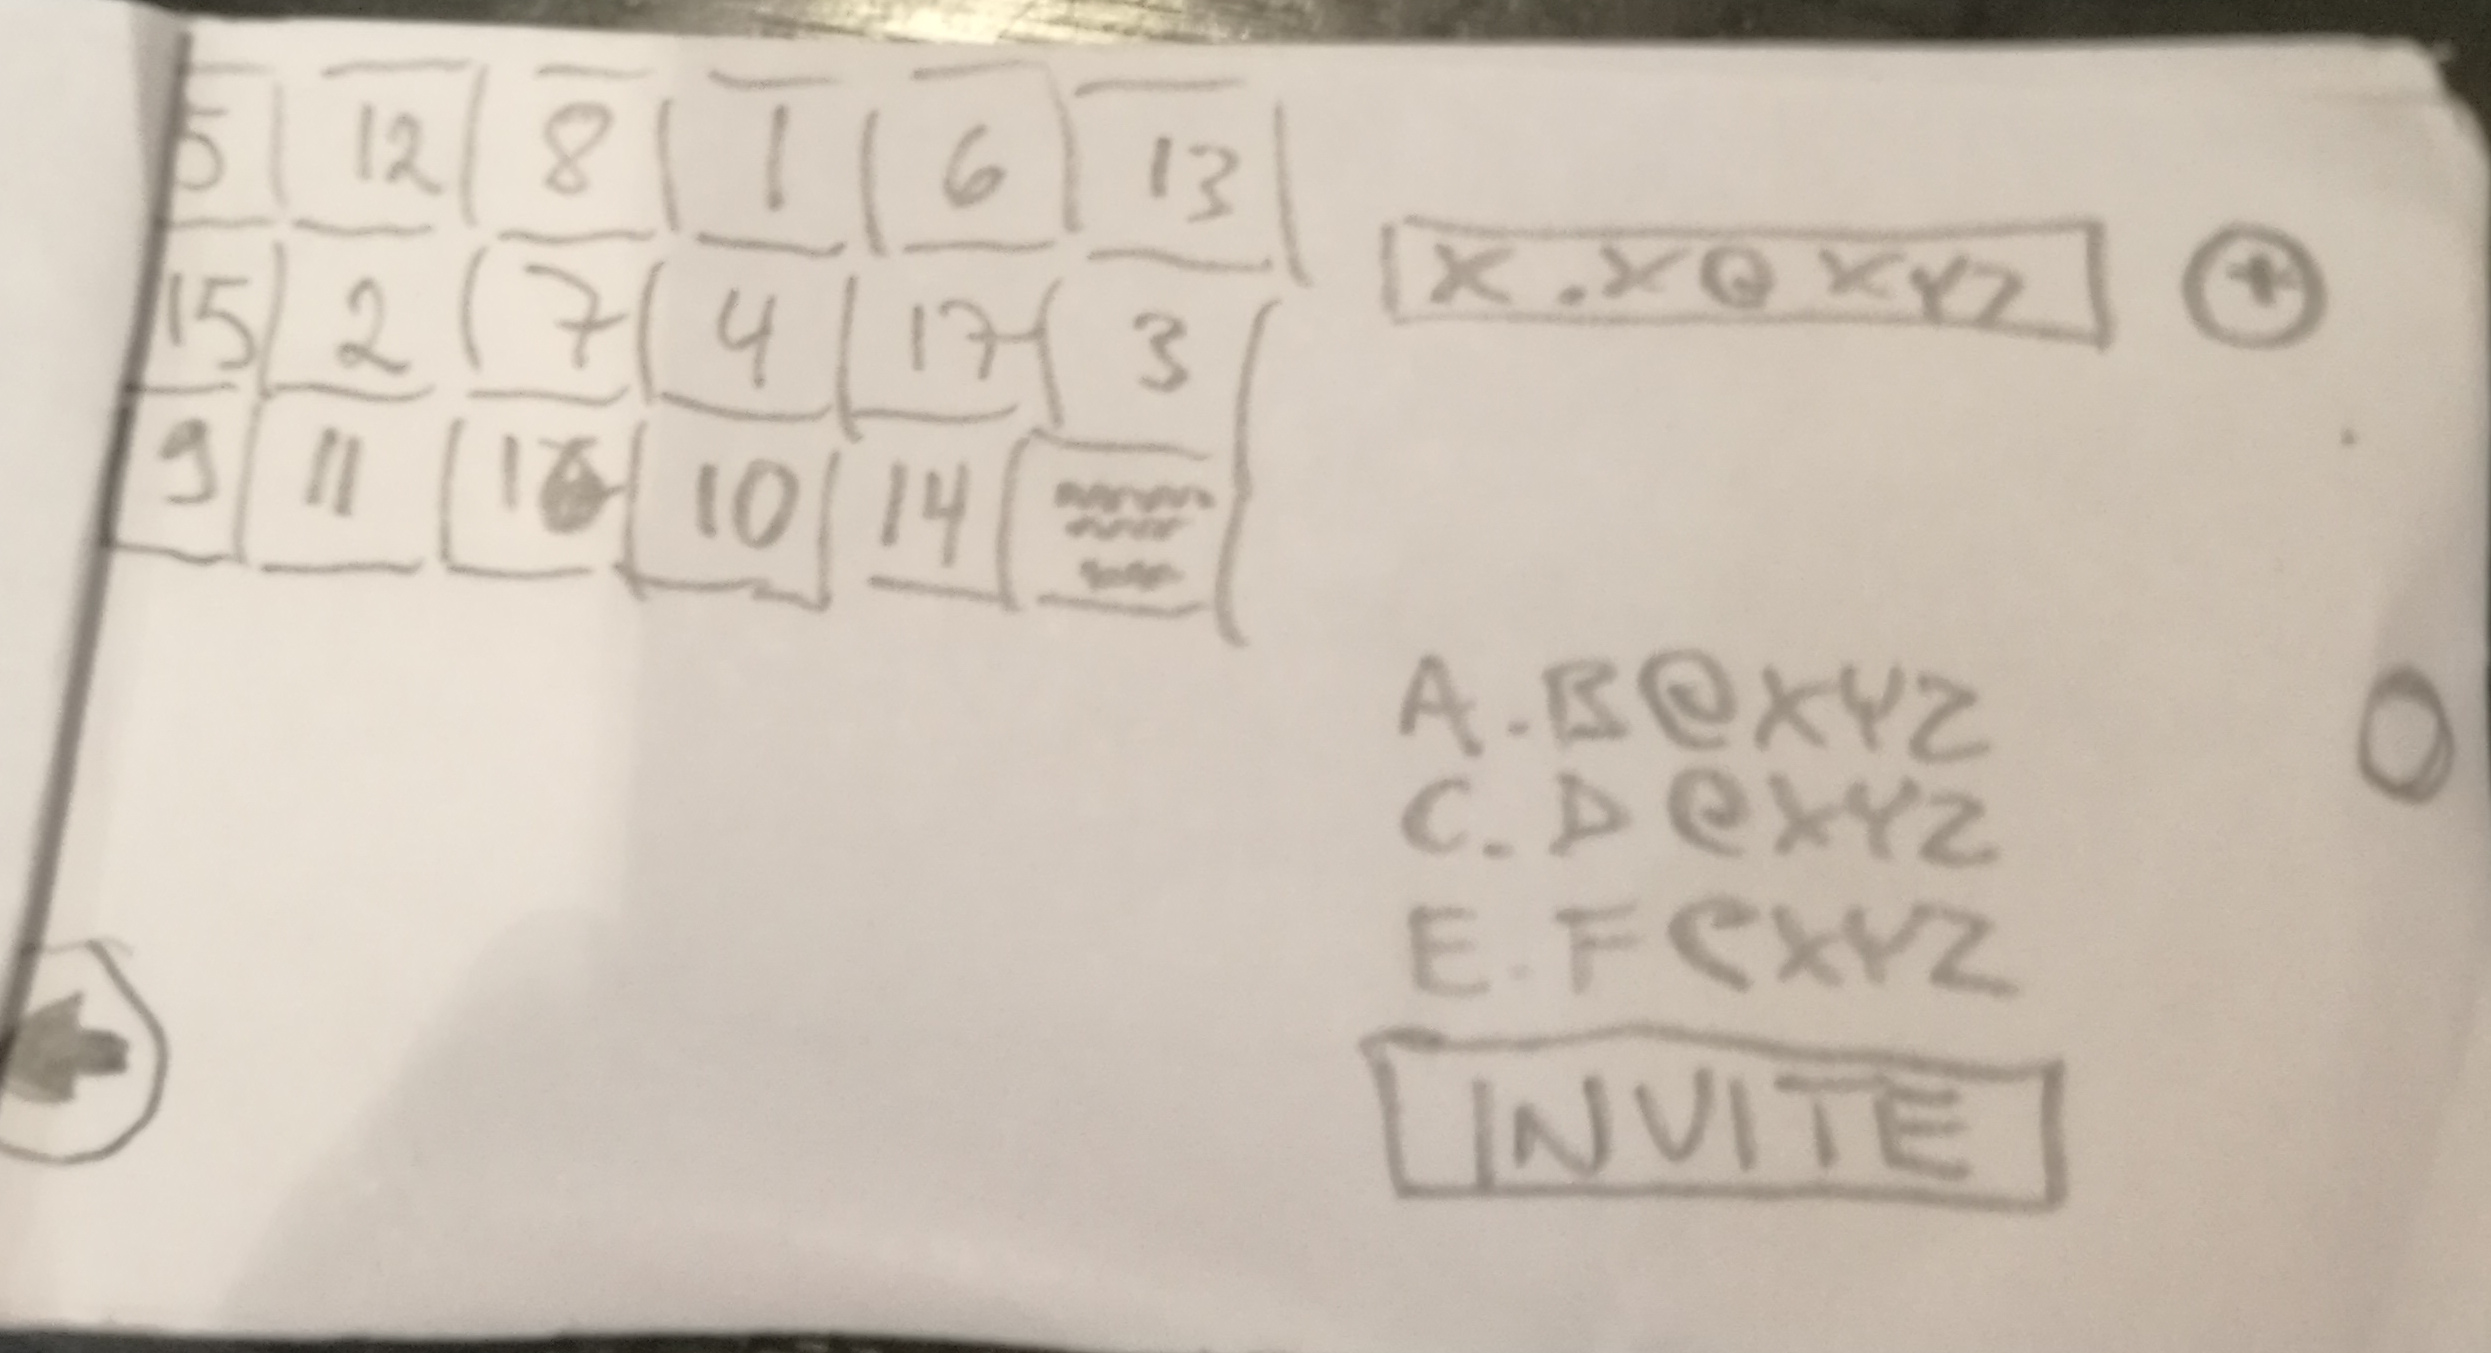 5 12 8 1 6 13
15 2 7 4 17 3
9 11 16 10 14
X.X@XYZ +
A.B@XYZ
C.D@XYZ
E.F@XYZ
INVITE